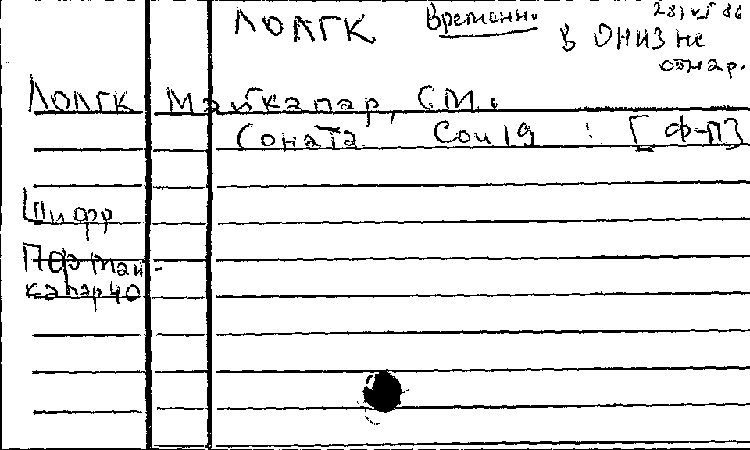 ЛОЛГК Временн. 28/VI 86
в ОНИЗ не
отнар.
ЛОЛГК Майкапар, С.М.
Соната Соч 19 : [Ф-П]
Шифр
П Ф Май-
капар 40